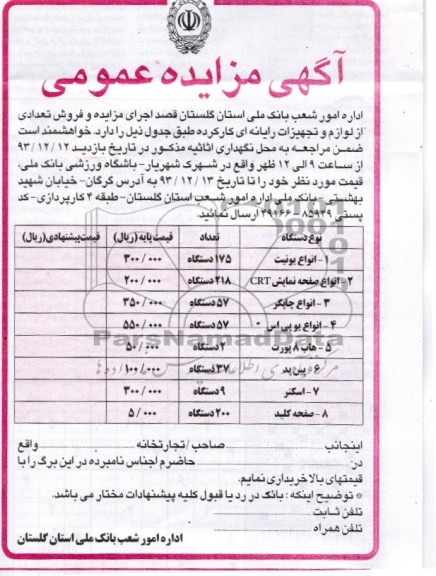 آگهی مزایده عمومی
اداره امور شعب بانک ملی استان گلستان قصد اجرای مزایده و فروش تعدادی
از لوازم و تجهیزات رایانه ای کارکرده طبق جدول ذیل را دارد. خواهشمند است
ضمن مراجعه به محل نگهداری اثاثیه مذکور در تاریخ بازدید ۹۳/۱۲/۱۲
از ساعت ۹ الی ۱۲ ظهر واقع در شهرک شهریار- باشگاه ورزشی بانک ملی،
قیمت مورد نظر خود را تا تاریخ ۹۳/۱۲/۱۳ به آدرس گرگان- خیابان شهید
بهشتی- بانک ملی اداره امور شعب استان گلستان- طبقه ۴ کارپردازی- کد
پستی ۸۵۹۴۹-۴۹۱۶۶ ارسال نمائید.
نوع دستگاه تعداد قیمت پایه (ریال) قیمت پیشنهادی(ریال)
۱- انواع یونیت ۱۷۵ دستگاه ۳۰۰/۰۰۰
۲- انواع صفحه نمایش CRT ۲۱۸ دستگاه ۲۰۰/۰۰۰
۳- انواع چاپگر ۵۷ دستگاه ۳۵۰/۰۰۰
۴- انواع یو پی اس ۵۷ دستگاه ۵۵۰/۰۰۰
۵- هاب ۸ پورت ۲ دستگاه ۵۰/۰۰۰
۶- پین پد ۳۷ دستگاه ۱۰۰/۰۰۰
۷- اسکنر ۹ دستگاه ۳۰۰/۰۰۰
۸- صفحه کلید ۲۰۰ دستگاه ۵/۰۰۰
ParsNamadData
اینجانب صاحب/تجارتخانه واقع
در حاضرم اجناس نامبرده در این برگ را با
قیمتهای بالا خریداری نمایم.
* توضیح اینکه: بانک در رد یا قبول کلیه پیشنهادات مختار می باشد.
تلفن ثابت
تلفن همراه
اداره امور شعب بانک ملی استان گلستان